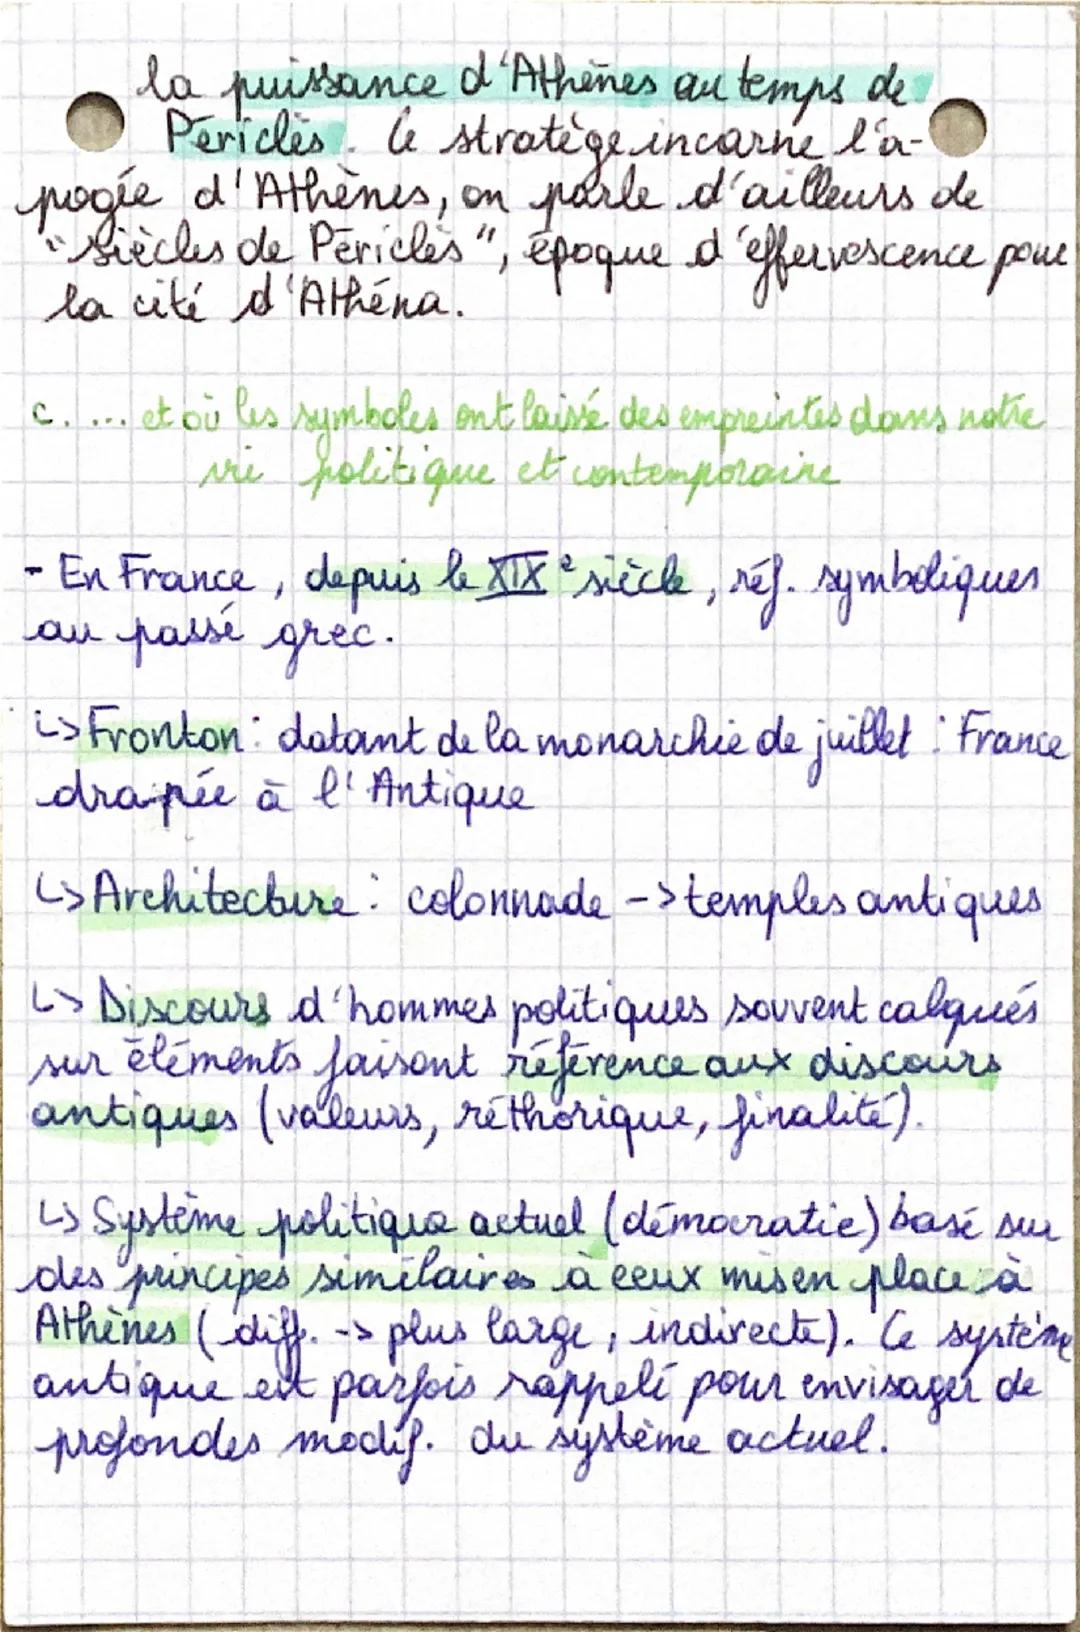 la puissance d'Athènes au temps de
Périclès. Ce stratège incarne l'a-
pogée d'Athènes, on parle d'ailleurs de
"siècles de Périclès", époque d'effervescence pour
la cité d'Athéna.
c. ... et où les symboles ont laissé des empreintes dans notre
vie politique et contemporaine
- En France, depuis le XIXe siècle, réf. symboliques
au passé grec.
↳ Fronton : datant de la monarchie de juillet : France
drapée à l'Antique
↳ Architecture : colonnade -> temples antiques
↳ Discours d'hommes politiques souvent calqués
sur éléments faisant référence aux discours
antiques (valeurs, réthorique, finalité).
↳ Système politique actuel (démocratie) basé sur
des principes similaires à ceux mis en place à
Athènes (diff. -> plus large, indirecte). Ce système
antique est parfois rappelé pour envisager de
profondes modif. du système actuel.